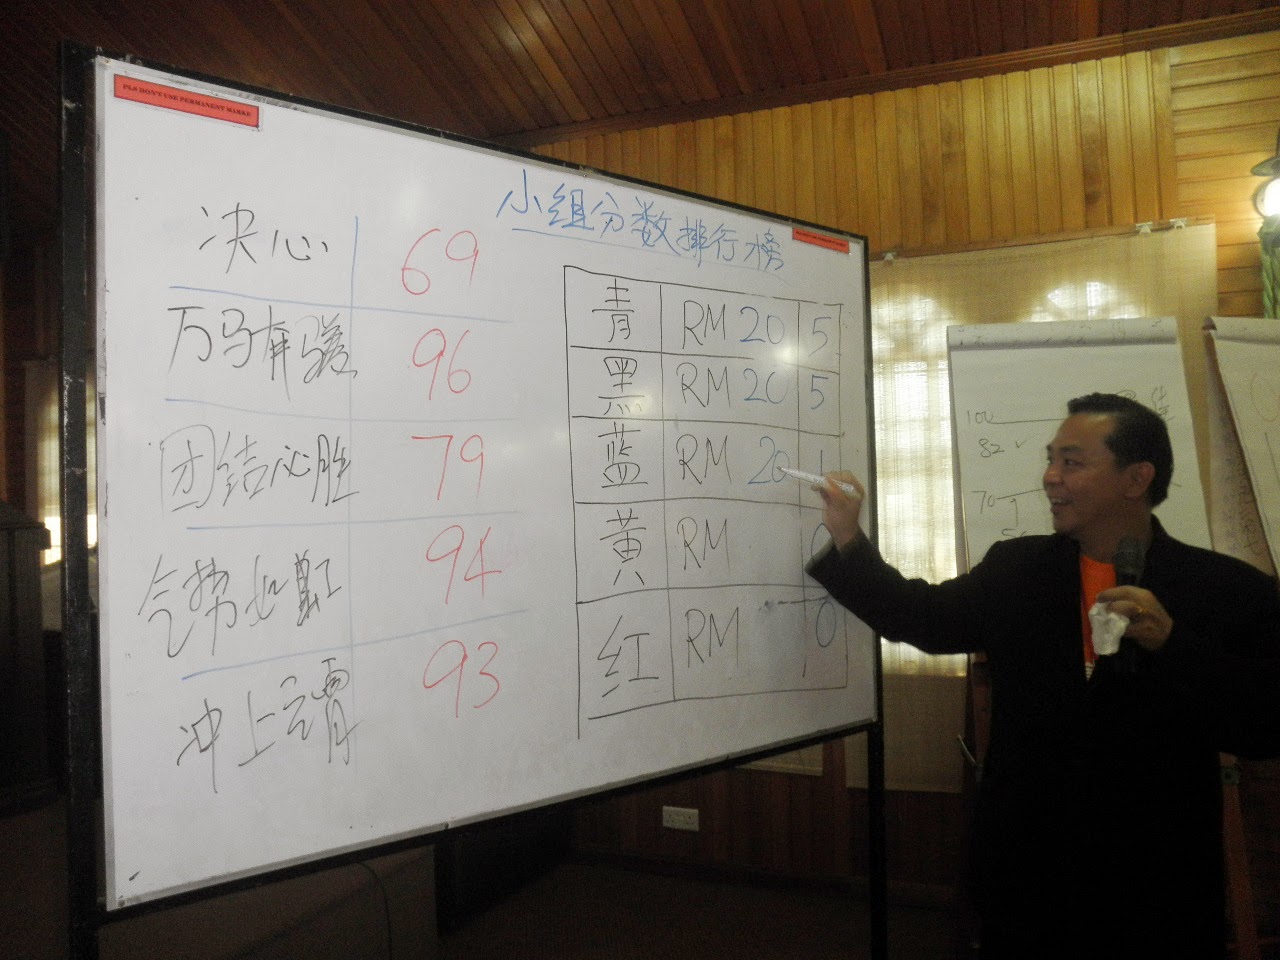 PLS DON'T USE PERMANENT MARKE
小组分数排行榜
决心 69
万马奔腾 96
团结必胜 79
气势如虹 94
冲上云霄 93
青 RM 20 5
黑 RM 20 5
蓝 RM 20 1
黄 RM 0
红 RM 0
100
82 ✓
70